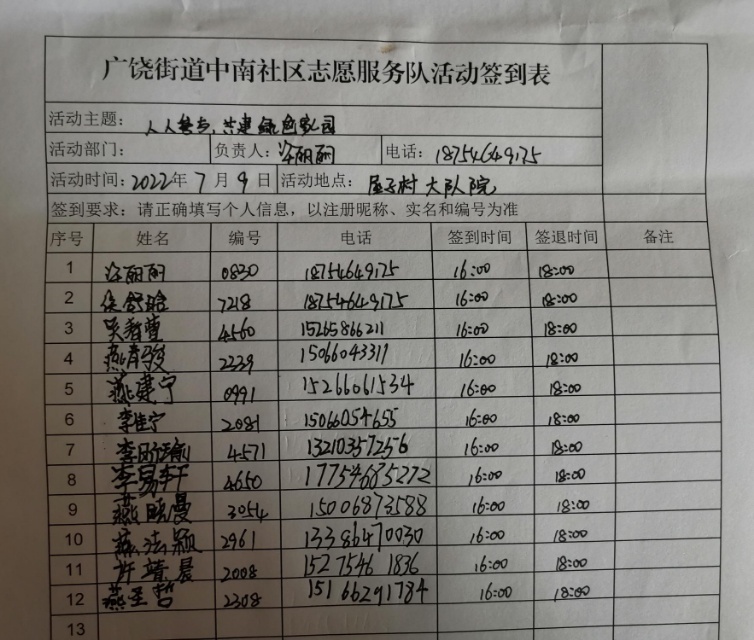 广饶街道中南社区志愿服务队活动签到表
活动主题：人人参与，共建绿色家园
活动部门： 负责人：许丽丽 电话：18754649175
活动时间：2022年7月9日 活动地点：屋子村大队院
签到要求：请正确填写个人信息，以注册昵称、实名和编号为准
序号 姓名 编号 电话 签到时间 签退时间 备注
1 许丽丽 0830 18754649175 16:00 18:00
2 7218 18754649175 16:00 18:00
3 4560 15265866211 16:00 18:00
4 2339 15066043311 16:00 18:00
5 燕建宁 0991 15266061534 16:00 18:00
6 李佳宁 2081 15066054655 16:00 18:00
7 4571 13210357256 16:00 18:00
8 李易轩 4650 17754685272 16:00 18:00
9 燕晓曼 3054 15006873588 16:00 18:00
10 2961 13386470030 16:00 18:00
11 许靖晨 2008 15275461836 16:00 18:00
12 燕圣哲 2308 15166291784 16:00 18:00
13